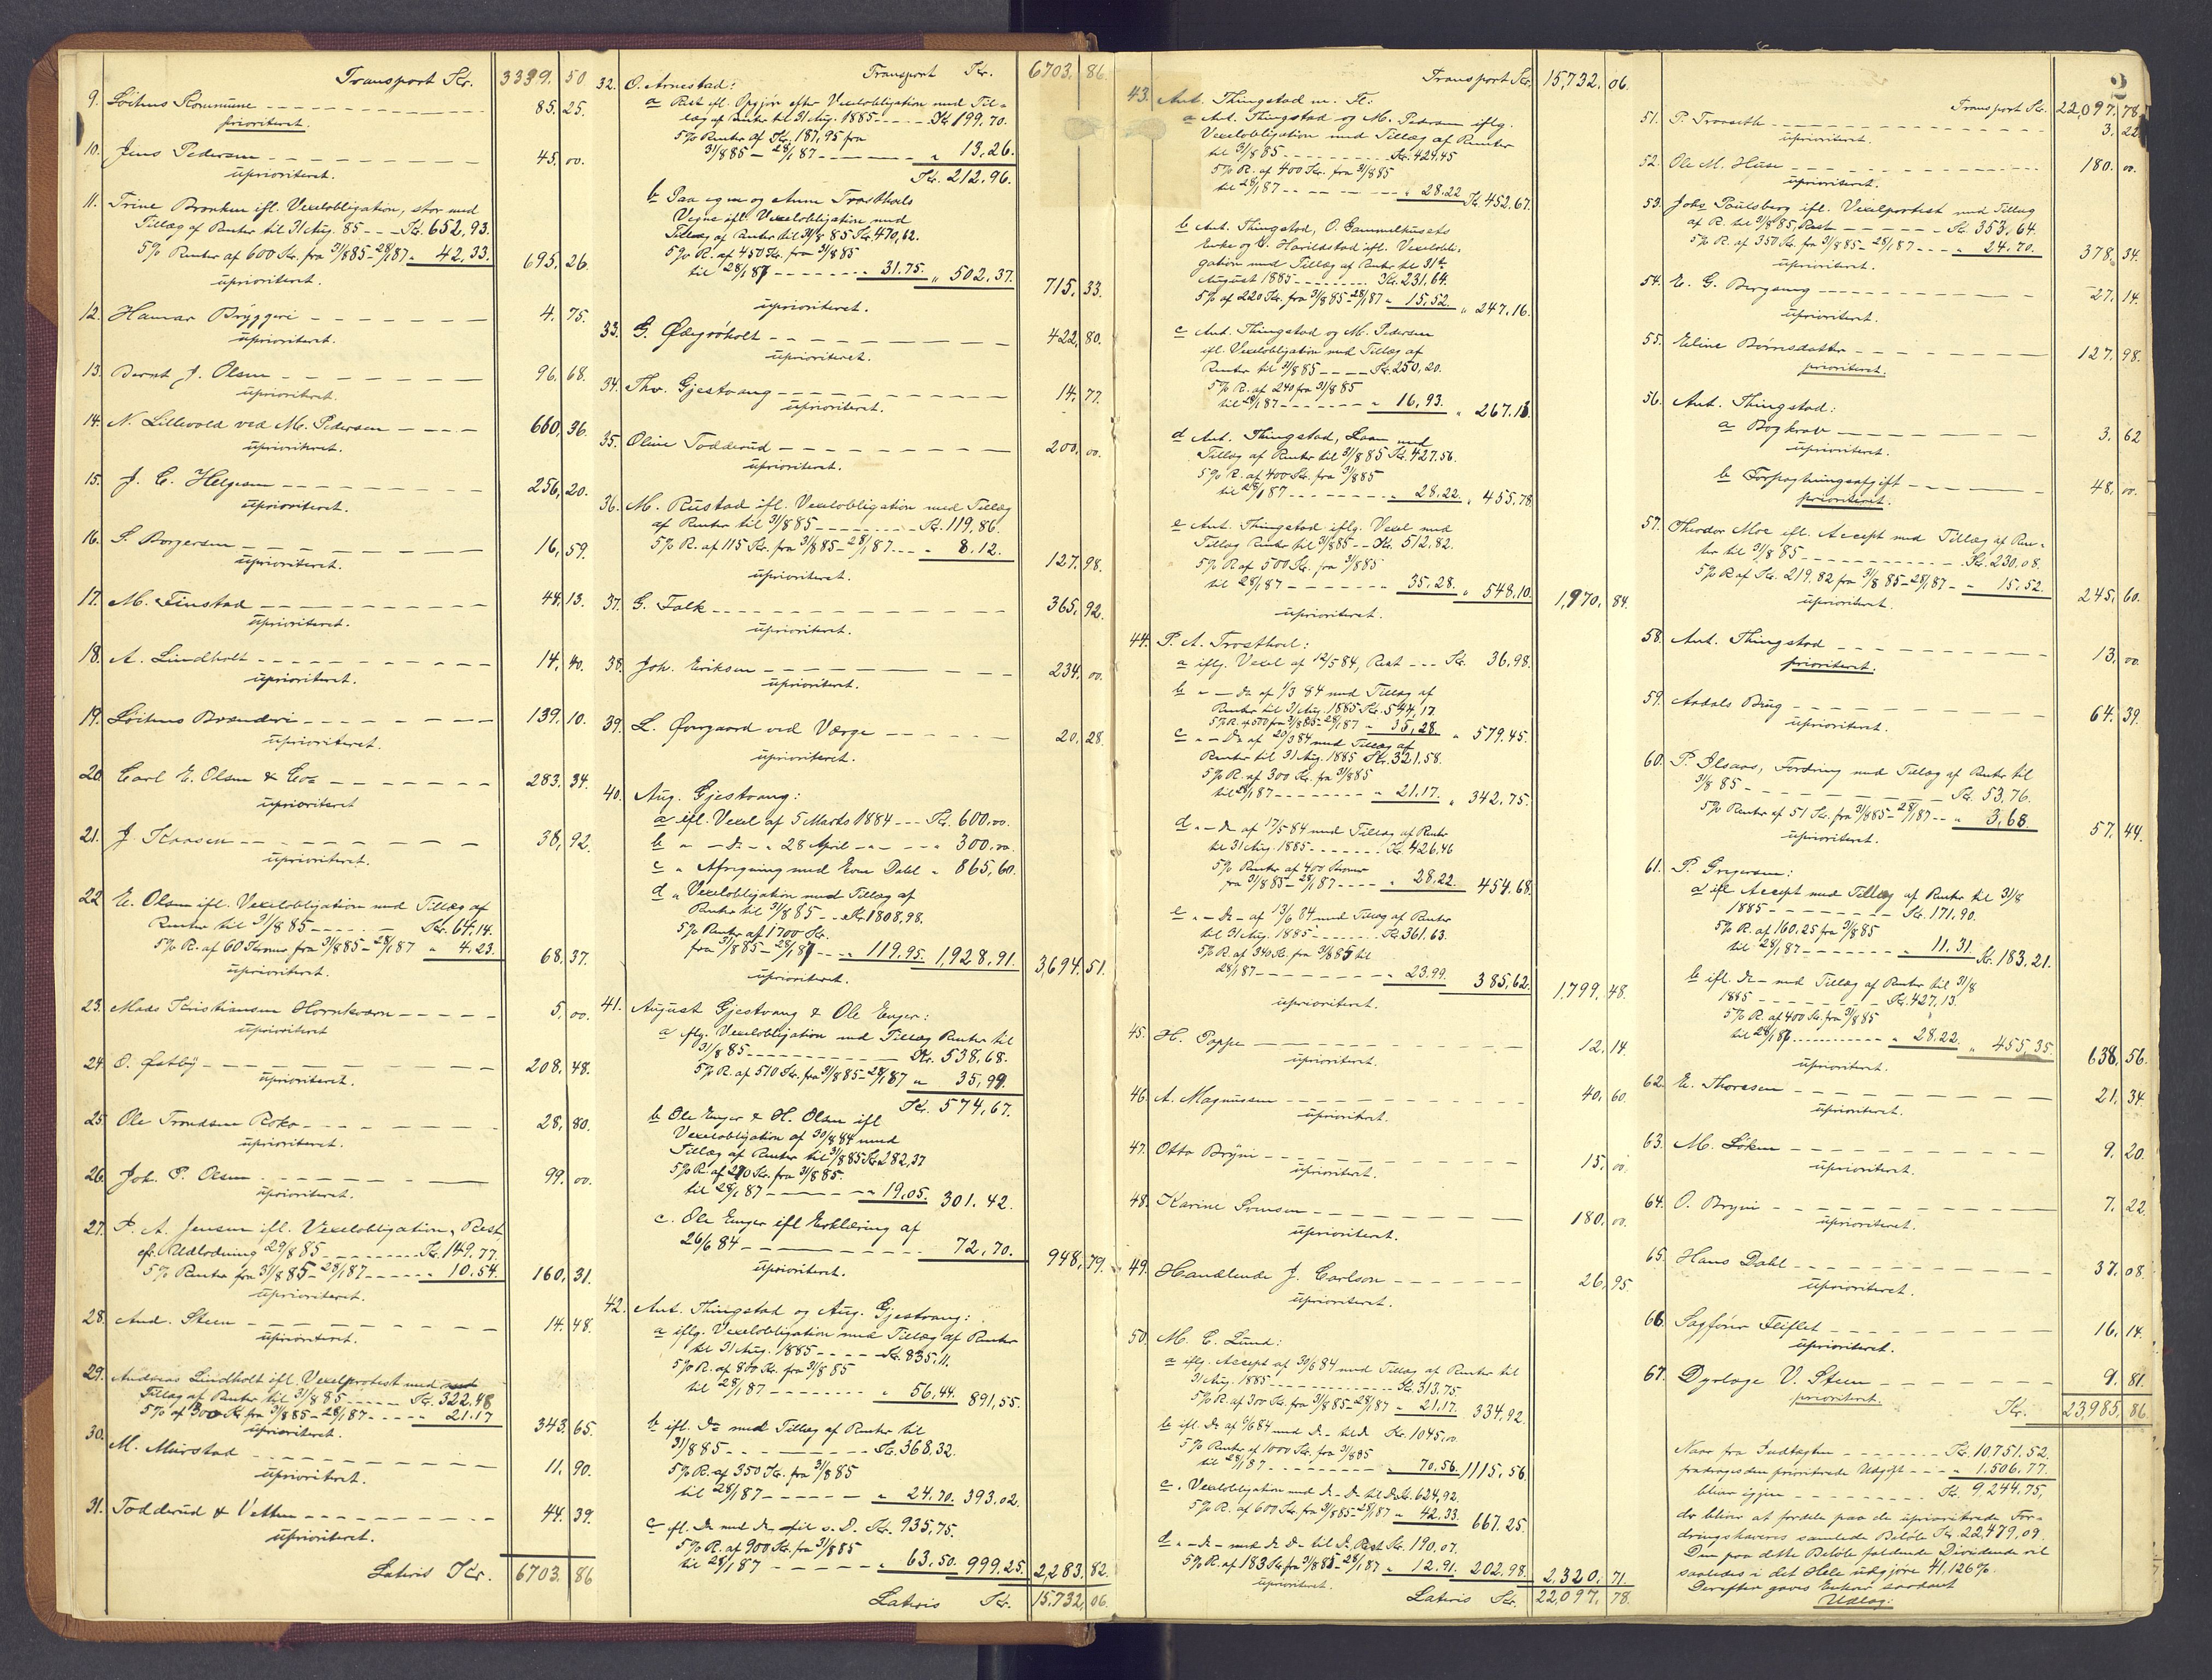 Transport Kr. 3339. 50
9. Løitens Kommune 85. 25.
prioriteret.
10. Jens Pedersen 45. 00.
üprioriteret.
11. Trine Bronken ifl. Vexelobligation, stor med
Tillæg af Renter til 31 Aug. 85 Kr. 652,93.
5% Renter af 600 Kr. fra 31/8 85 - 28/1 87 " 42,33. 695. 26.
üprioriteret.
12. Hamar Bryggeri 4. 75.
üprioriteret.
13. Bernt J. Olsen 96. 68.
üprioriteret.
14. N. Lillevold ved M. Pedersen 660, 36.
üprioriteret.
15. J. C. Helgesen 256, 20.
üprioriteret.
16. S. Borgersen 16, 59.
üprioriteret.
17. M. Finstad 44, 13.
üprioriteret.
18. A. Lindholt 14, 40.
üprioriteret.
19. Løitens Brænderi 139. 10.
üprioriteret.
20. Carl E. Olsen & Co 283. 34.
üprioriteret
21. J. Kaasen 38, 92.
üprioriteret.
22. E. Olsen ifl. Vexelobligation med Tillæg af
Renter til 31/8 85 Kr. 64.14.
5% R. af 60 Kroner fra 31/8 85 - 28/1 87 " 4.23. 68, 37.
üprioriteret.
23. Mads Kristiansen Hornkværn 5, 00.
üprioriteret
24. O. Østby 208, 48.
üprioriteret.
25. Ole Trondsen Roko 28, 80.
üprioriteret.
26. Joh. P. Olsen 99. 00.
üprioriteret.
27. P. A. Jensen ifl. Vexelobligation, Rest
eft. Udlodning 29/8 85 Kr. 149.77.
5% Renter fra 31/8 85 - 28/1 87 " 10.54. 160, 31.
üprioriteret.
28. And. Steen 14. 48.
üprioriteret.
29. Andreas Lindholt ifl. Vexelprotest med
Tillæg af Renter til 31/8 85 Kr. 322,48
5% af 300 Kr. fra 31/8 85 - 28/1 87 " 21.17 343, 65.
üprioriteret.
30. M. Müistad 11, 90.
üprioriteret.
31. Todderud & Vetten 44. 39.
üprioriteret.
Lateris Kr. 6703. 86
Transport Kr. 6703. 86.
32. O. Arnestad:
a Rest ifl. Opgjør efter Vexelobligation med Til-
læg af Renter til 31 Aug. 1885 Kr. 199.70.
5% Renter af Kr. 187,95 fra
31/8 85 - 28/1 87 " 13,26.
Kr. 212,96.
b Paa egne og Anne Trosthoels
Vegne ifl. Vexelobligation med
Tillæg af Renter til 31/8 85 Kr. 470,62.
5% R. af 450 Kr. fra 31/8 85
til 28/1 87 31.75. " 502,37. 715, 33.
üprioriteret.
33. G. Ødegsøholt 422, 80.
üprioriteret.
34. Thv. Gjestvang 14, 77.
üprioriteret.
35. Oline Todderud 200, 00.
üprioriteret.
36. M. Rustad ifl. Vexelobligation med Tillæg
af Renter til 31/8 85 Kr. 119,86.
5% R. af 115 Kr. fra 31/8 85 - 28/1 87 " 8.12. 127. 98.
üprioriteret.
37. G. Falk 365, 92.
üprioriteret.
38. Joh. Eriksen 234, 00.
üprioriteret.
39. L. Øvergaard ved Værge 20, 28.
üprioriteret.
40. Aug. Gjestvang:
a ifl. Vexel af 5 Marts 1884 Kr. 600,00.
b " — Do — " 28 April — " — " 300,00.
c " Afregning med Even Dahl " 865,60.
d " Vexelobligation med Tillæg af
Renter til 31/8 85 Kr. 1808,98.
5% Renter af 1700 Kr.
fra 31/8 85 - 28/1 87 " 119.95. 1,928,91. 3,694, 51.
üprioriteret.
41. August Gjestvang & Ole Enger:
a iflg. Vexelobligation med Tillæg Renter til
31/8 85 Kr. 538,68.
5% R. af 510 Kr. fra 31/8 85 - 28/1 87 " 35,99.
Kr. 574,67.
b Ole Enger & H. Olsen ifl
Vexelobligation af 30/8 84 med
Tillæg af Renter til 31/8 85 Kr. 282,37
5% R. af 270 Kr. fra 31/8 85.
til 28/1 87 " 19.05. 301.42.
c. Ole Enger ifl Erklæring af
26/6 84 72,70. 948, 79.
üprioriteret.
42. Ant. Thingstad og Aug. Gjestvang:
a iflg. Vexelobligation med Tillæg af Renter
til 31 Aug. 1885 Kr. 835,11.
5% R. af 800 Kr. fra 31/8 85
til 28/1 87 " 56.44. 891,55.
b ifl. Do med Tillæg af Renter til
31/8 85 Kr. 368.32.
5% R. af 350 Kr. fra 31/8 85
til 28/1 87 " 24.70. 393.02.
c ifl. Do med Do til s. D. Kr. 935,75.
5% R. af 900 Kr. fra 31/8 85
til 28/1 87 " 63.50. 999.25. 2,283. 82.
Lateris Kr. 15,732, 06.
Transport Kr. 15,732, 06.
43. Ant. Thingstad m. Fl:
a Ant. Thingstad og M. Pedersen iflg.
Vexelobligation med Tillæg af Renter
til 31/8 85 Kr. 424.45
5% R. af 400 Kr. fra 31/8 85
til 28/1 87 " 28.22 Kr. 452.67.
b Ant. Thingstad, O. Gammelhusets
Enke og C. Harildstad ifl. Vexelobli-
gation med Tillæg af Renter til 31te
August 1885 Kr. 231,64.
5% af 220 Kr. fra 31/8 85 - 28/1 87 " 15,52. " 247.16.
c Ant. Thingstad og M. Pedersen
ifl. Vexelobligation med Tillæg af
Renter til 31/8 85 Kr. 250,20.
5% R. af 240 fra 31/8 85
til 28/1 87 " 16,93. " 267.13.
d Ant. Thingstad, Laan med
Tillæg af Renter til 31/8 85 Kr. 427.56.
5% R. af 400 Kr. fra 31/8 85
til 28/1 87 " 28.22. " 455,78
e Ant. Thingstad iflg. Vexel med
Tillæg Renter til 31/8 85 Kr. 512,82.
5% R af 500 Kr. fra 31/8 85
til 28/1 87 35.28. " 548,10. 1,970, 84.
üprioriteret.
44. P. A. Trosthoel:
a iflg. Vexel af 12/5 84, Rest Kr. 36,98.
b " — Do af 1/3 84 med Tillæg af
Renter til 31 Aug. 1885 Kr. 544,17
5% R. af 500 fra 31/8 85 - 28/1 87 " 35,28 " 579.45.
c " — Do af 20/3 84 med Tillæg af
Renter til 31 Aug. 1885 Kr. 321,58.
5% R. af 300 Kr. fra 31/8 85
til 28/1 87 " 21.17. " 342,75.
d " — Do af 17/5 84 med Tillæg af Renter
til 31 Aug. 1885 Kr. 426.46
5% Renter af 400 Kroner
fra 31/8 85 - 28/1 87 " 28.22. 454.68.
e " — Do — af 13/6 84 med Tillæg af Renter
til 31 Aug. 1885 Kr. 361.63.
5% R. af 340 Kr. fra 31/8 85 til
28/1 87 " 23.99. 385,62. 1,799, 48.
üprioriteret.
45. H. Poppe 12, 14.
üprioriteret.
46. A. Magnussen 40, 60.
üprioriteret.
47. Otto Bryni 15, 00.
üprioriteret.
48. Karine Svensen 180, 00.
üprioriteret.
49. Handlende J. Carlson 26, 95.
üprioriteret.
50. M. C. Lund:
a iflg. Accept af 30/6 84 med Tillæg af Renter til
31 Aug. 1885 Kr. 313.75
5% R. af 300 Kr. fra 31/8 85 - 28/1 87 " 21.17. 334,92.
b ifl. Do af 6/6 84 med Do — til Do Kr. 1045,00.
5% Renter af 1000 Kr. fra 31/8 85
til 28/1 87 " 70.56. 1115,56
c " Vexelobligation med Do — Do til Do Kr. 624,92.
5% R. af 600 Kr. fra 31/8 85 - 28/1 87 " 42.33. 667.25.
d " — Do — med Do Do — til Do, Rest Kr. 190.07.
5% R. af 183 Kr. fra 31/8 85 - 28/1 87 " 12.91. 202,98. 2,320, 71.
üprioriteret.
Lateris Kr. 22,097, 78.
2
Transport Kr. 22,097, 78,
51. P. Traaseth 3. 22
üprioriteret.
52. Ole M. Huse 180. 00.
üprioriteret.
53. Johs Poulsberg ifl. Vexelprotest med Tillæg
af R. til 31/8 85, Rest Kr. 353.64.
5% R. af 350 Kr. fra 31/8 85 - 28/1 87 " 24.70. 378. 34.
üprioriteret.
54. E. G. Bergseng 27. 14.
üprioriteret.
55. Eline Børresdatter 127, 98.
prioriteret.
56. Ant. Thingstad:
a Bogkrav 3, 62
üprioriteret.
b Forpagtningsafgift 48, 00.
prioriteret.
57. Theodor Moe ifl. Accept med Tillæg af Ren-
ter til 31/8 85 Kr. 230,08.
5% R af Kr. 219,82 fra 31/8 85 - 28/1 87 " 15,52. 245, 60.
üprioriteret.
58. Ant. Thingstad 13, 00.
prioriteret.
59. Aadals Brug 64. 39.
üprioriteret.
60. P. Ilsaas, Fordring med Tillæg af Renter til
31/8 85 Kr. 53,76.
5% Renter af 51 Kr. fra 31/8 85 - 28/1 87 " 3,68. 57. 44.
üprioriteret.
61. P. Gregersen:
a ifl Accept med Tillæg af Renter til 31/8
1885 Kr. 171.90.
5% R. af 160,25 fra 31/8 85
til 28/1 87 " 11.31. Kr. 183.21.
b ifl. Do — med Tillæg af Renter til 31/8
1885 Kr. 427,13.
5% R. af 400 Kr. fra 31/8 85
til 28/1 87 " 28.22. " 455,35. 638, 56.
üprioriteret.
62. E. Thoresen 21, 34.
üprioriteret.
63. M. Løken 9. 20.
üprioriteret.
64. O. Bryni 7. 22.
üprioriteret.
65. Hans Dahl 37. 08.
üprioriteret.
66. Sagfører Feiflet 16, 14.
üprioriteret.
67. Dyrlæge V. Steen 9. 81.
prioriteret.
Kr. 23,985, 86
Naar fra Indtægten Kr. 10,751,52.
fradrages den prioriterede Udgift " 1,506,77.
bliver igjen Kr. 9,244,75,
der bliver at fordele paa de üprioriterede For-
dringshaveres samlede Beløb Kr. 22,479,09.
Den paa dette Beløb faldende Dividende vil
saaledes i det Hele udgjøre 41,126%.
Derefter gives Enhver saadant
Udlæg: